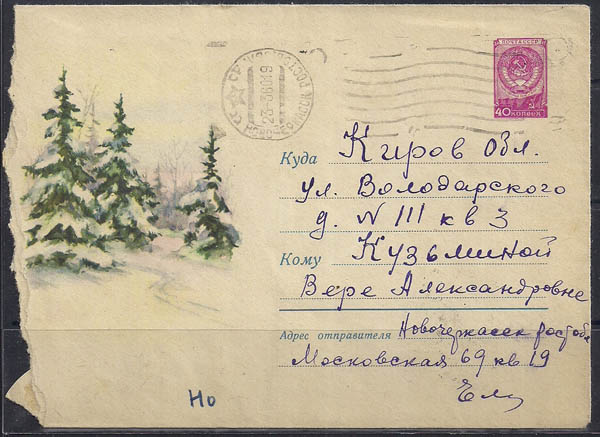 ПОЧТА СССР
40 КОПЕЕК
Куда Киров Обл.
ул. Володарского
д. N 111 кв 3
Кому Кузьминой
Вере Александровне
Адрес отправителя Новочеркасск рост обл
Московская 69 кв 19
Но